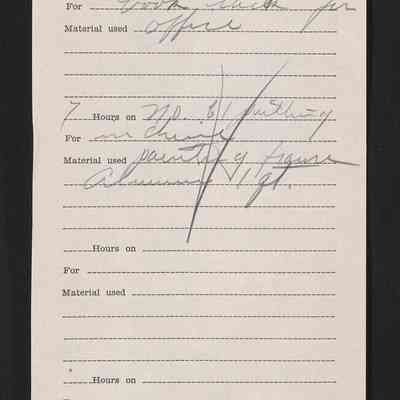 For book rack for
Material used office
7 Hours on No. 81 putting
For in
Material used painting figure
Aluminum 1 qt.
Hours on
For
Material used
Hours on